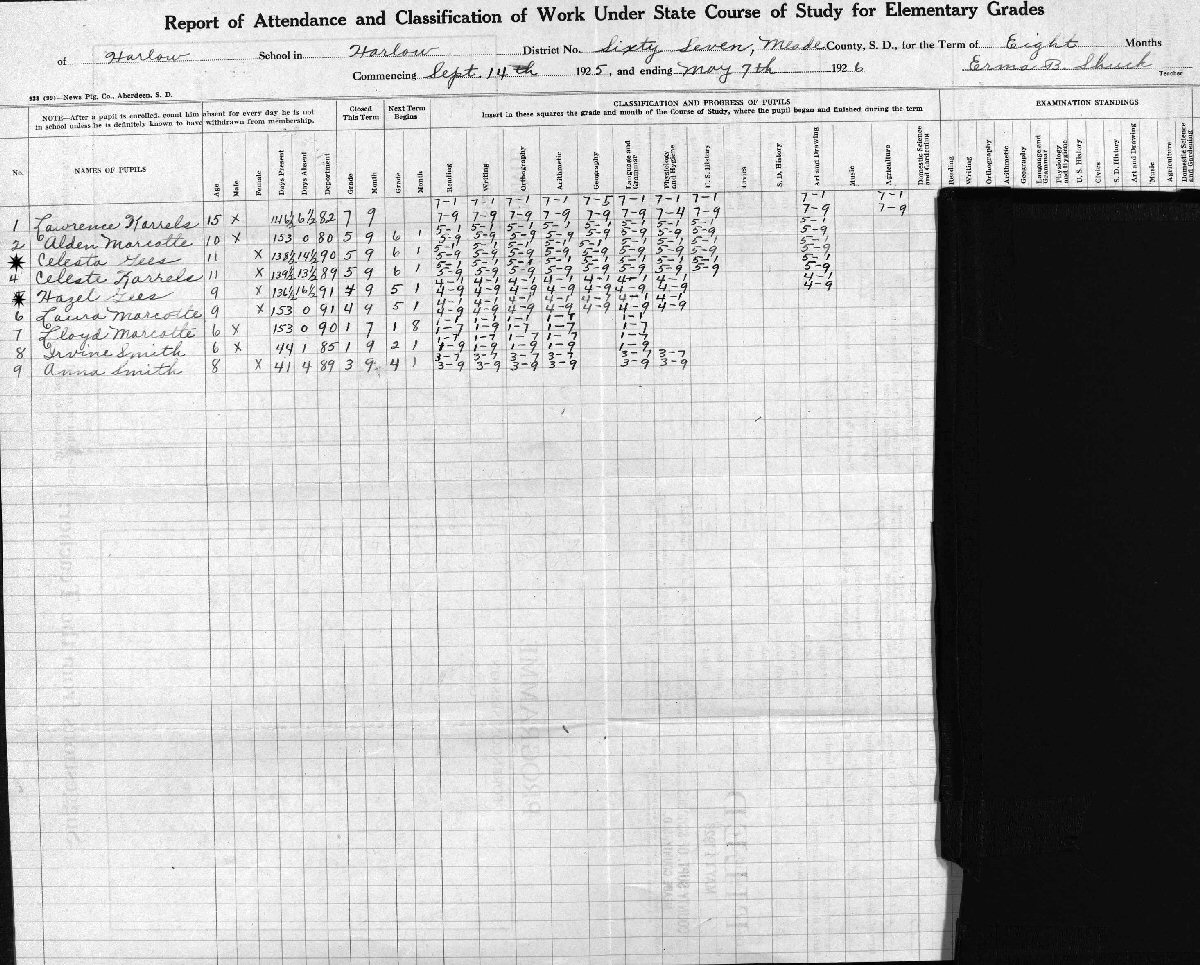 Report of Attendance and Classification of Work Under State Course of Study for Elementary Grades
of Harlow School in Harlow District No. Sixty Seven, Meade County, S. D., for the Term of Eight Months
Commencing Sept. 14th 1925, and ending May 7th 1926 Erma B. Shuck Teacher
NOTE—After a pupil is enrolled, count him absent for every day he is not
in school unless he is definitely known to have withdrawn from membership.
Closed This Term
Next Term Begins
CLASSIFICATION AND PROGRESS OF PUPILS
Insert in these squares the grade and month of the Course of Study, where the pupil began and finished during the term
EXAMINATION STANDINGS
No. NAMES OF PUPILS Age Male Female Days Present Days Absent Deportment Grade Month Grade Month Reading Writing Orthography Arithmetic Geography Language and Grammar Physiology and Hygiene U. S. History Civics S. D. History Art and Drawing Music Agriculture Domestic Science and Gardening Reading Writing Orthography Arithmetic Geography Language and Grammar Physiology and Hygiene U. S. History Civics S. D. History Art and Drawing Music Agriculture Domestic Science and Gardening
7-1 7-1 7-1 7-1 7-5 7-1 7-1 7-1 7-1 7-1
1 Lawrence Karrels 15 x 146½ 6½ 82 7 9 7-9 7-9 7-9 7-9 7-9 7-9 7-4 7-9 7-9 7-9
5-1 5-1 5-1 5-1 5-1 5-1 5-1 5-1 5-1
2 Alden Marcotte 10 x 153 0 80 5 9 6 1 5-9 5-9 5-9 5-9 5-9 5-9 5-9 5-9 5-9
5-1 5-1 5-1 5-1 5-1 5-1 5-1 5-1 5-1
Celesta Gees 11 x 138½ 14½ 90 5 9 6 1 5-9 5-9 5-9 5-9 5-9 5-9 5-9 5-9 5-9
5-1 5-1 5-1 5-1 5-1 5-1 5-1 5-1 5-1
4 Celeste Karrels 11 x 139½ 13½ 89 5 9 6 1 5-9 5-9 5-9 5-9 5-9 5-9 5-9 5-9 5-9
4-1 4-1 4-1 4-1 4-1 4-1 4-1 4-1
Hazel Gees 9 x 136½ 16½ 91 4 9 5 1 4-9 4-9 4-9 4-9 4-9 4-9 4-9 4-9
4-1 4-1 4-1 4-1 4-1 4-1 4-1
6 Laura Marcotte 9 x 153 0 91 4 9 5 1 4-9 4-9 4-9 4-9 4-9 4-9 4-9
1-1 1-1 1-1 1-1 1-1
7 Lloyd Marcotte 6 x 153 0 90 1 7 1 8 1-7 1-9 1-7 1-7 1-7
1-7 1-7 1-7 1-7 1-7
8 Irvine Smith 6 x 44 1 85 1 9 2 1 1-9 1-9 1-9 1-9 1-9
3-7 3-7 3-7 3-7 3-7 3-7
9 Anna Smith 8 x 41 4 89 3 9 4 1 3-9 3-9 3-9 3-9 3-9 3-9